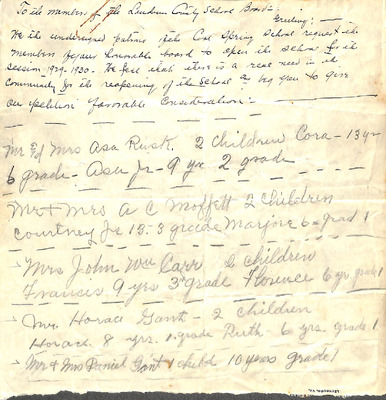 To the members of the Loudoun County School Board:-
Greeting: -
We the undersigned patrons of the Cool Spring School request the
members of your honorable board to open the school for the
session 1929-1930. We feel that there is a real need in the
community for the reopening of the school and beg you to give
our petition favorable consideration.-
Mr & Mrs Asa Rusk. 2 children Cora - 13 yr
6 grade - Asa Jr - 9 yr 2 grade
Mr & Mrs A C Moffett 2 children
Courtney Jr 13 - 3 grade Marjorie 6 - grad 1
Mrs John Wm Carr 2 children
Frances 9 yrs 3rd grade Florence 6 yr grade 1
Mr Horace Gant - 2 children
Horace 8 yrs. 1 grade Ruth - 6 yrs. grade 1
Mr & Mrs Daniel Gant 1 child 10 years grade 1